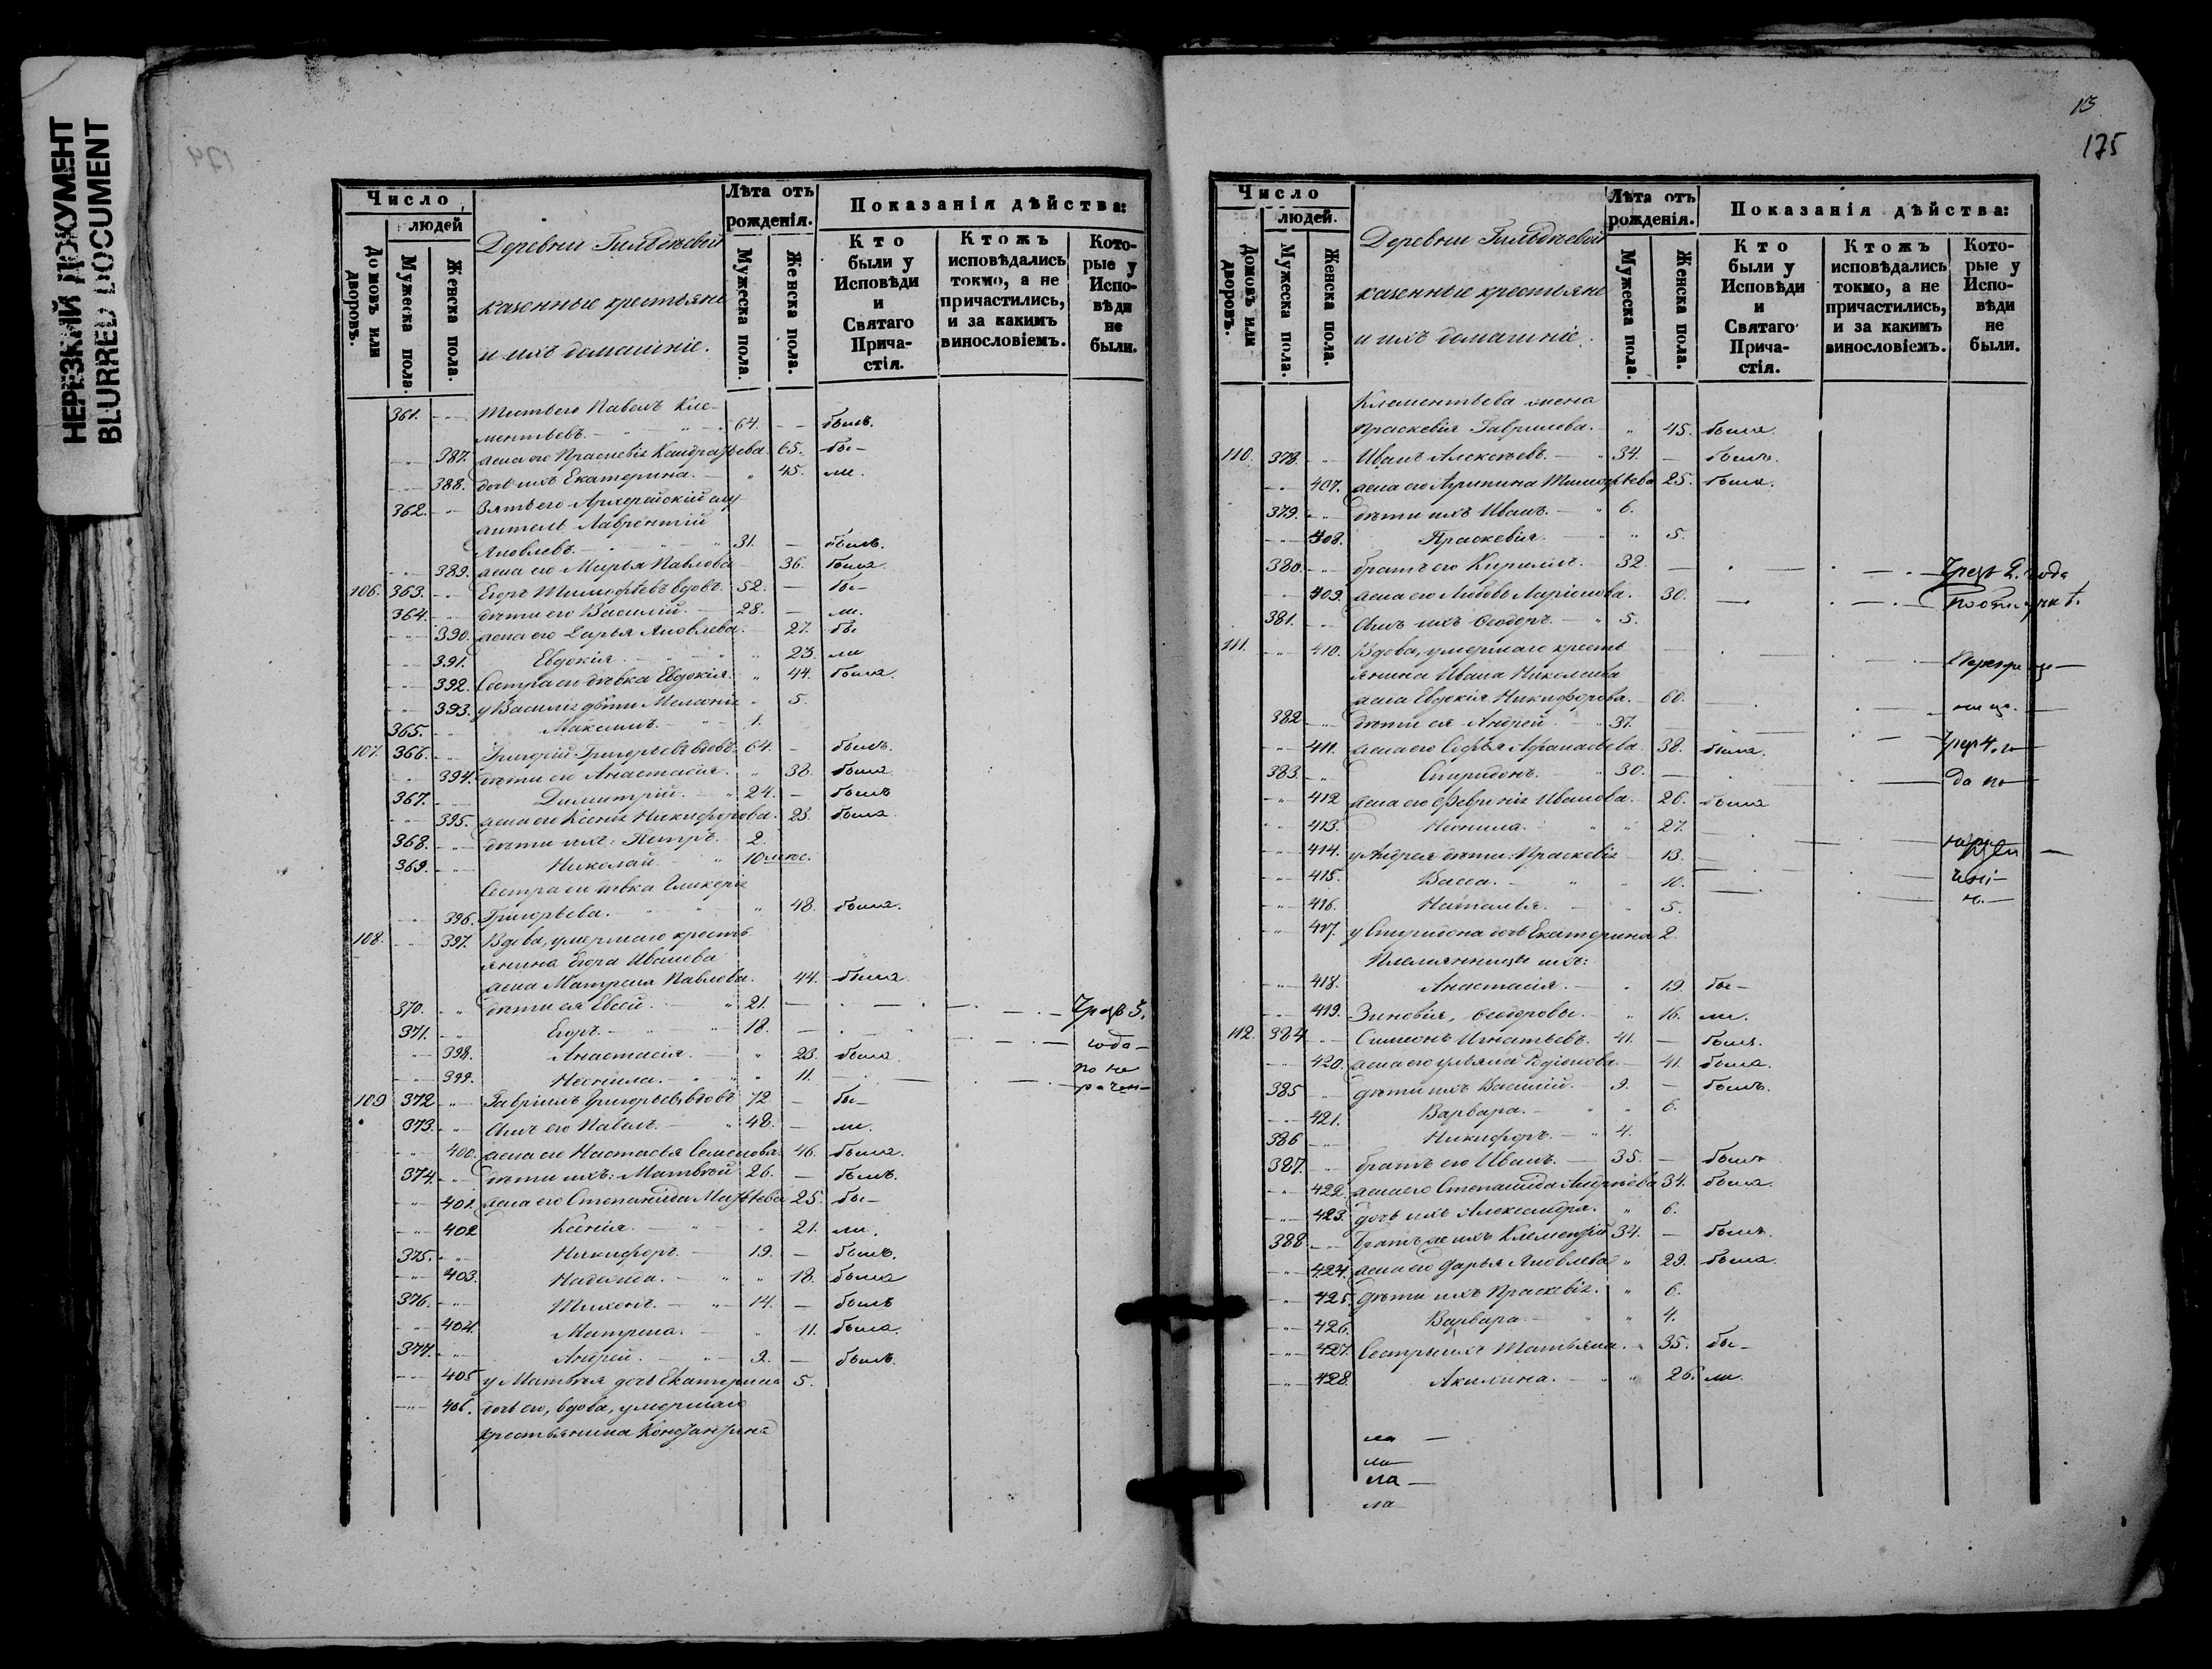 НЕРЕЗКИЙ ДОКУМЕНТ
BLURRED DOCUMENT
Число
людей
Домовъ или дворовъ.
Мужеска пола.
Женска пола.
Деревни
казенные крестьяне
и ихъ домашніе.
Лѣта отъ рожденія.
Мужеска пола.
Женска пола.
Показанія дѣйства:
Кто были у Исповѣди и Святаго Причастія.
Ктожъ исповѣдались токмо, а не причастились, и за какимъ винословіемъ.
Которые у Исповѣди не были.
361. Тесть его Павелъ Кле-
ментьевъ. 64. былъ.
387. жена его Праскевія Кондратьева. 65. бы-
388. дочь ихъ Екатерина. 45. ли.
362. Зять его Архерейскій слу-
житель Лаврентій
Яковлевъ. 31. былъ.
389. жена его Марья Павлова 36. была.
106. 363. Егоръ Тимофѣевъ вдовъ. 52. бы-
364. дѣти его Василій. 28. ли.
390. жена его Дарья Яковлева. 27. бы
391. Евдокія. 23. ли
392. Сестра ему дѣвка Евдокія. 44. была.
393. у Василія дѣти Меланія 5.
365. Максимъ. 1.
107. 366. Григорій Григорьевъ вдовъ. 64. былъ.
394. дѣти его Анастасія. 38. была
367. Димитрій. 24. былъ
395. жена его Ксенія Никифорова. 23. была.
368. дѣти ихъ: Петръ. 2.
369. Николай. 10 мѣс.
Сестра ему дѣвка Гликерія
396. Григорьева. 48. была.
108. 397. Вдова, умершаго кресть-
янина Егора Иванова
жена Матрена Павлова. 44. была.
370. дѣти ея Евсей. 21. Чрезъ 3.
371. Егоръ. 18.
398. Анастасія. 23. была. года
399. Неонила. 11. по не
рачен-
109 372 Гавріилъ Григорьевъ вдовъ 72 бы-
373. Сынъ его Павелъ. 48. ли.
400. жена его Настасья Семенова. 46. была.
374. дѣти ихъ: Матвѣй 26. былъ.
401. жена его Степанида Матѣева 25. бы-
402 Ксенія. 21. ли.
375. Никифоръ. 19. былъ.
403. Надежда. 18. была
376. Тихонъ. 14. былъ
404. Матрена. 11. была.
377. Андрей. 9. былъ.
405 у Матвѣя дочь Екатерина 5.
406. дочь его, вдова, умершаго
крестьянина Константина
113
175
Число
людей.
Домовъ или дворовъ.
Мужеска пола.
Женска пола.
Деревни
казенные крестьяне
и ихъ домашніе.
Лѣта отъ рожденія.
Мужеска пола.
Женска пола.
Показанія дѣйства:
Кто были у Исповѣди и Святаго Причастія.
Ктожъ исповѣдались токмо, а не причастились, и за какимъ винословіемъ.
Которые у Исповѣди не были.
Клементьева жена
Праскевія Гаврилова. 45. была.
110. 378. Иванъ Алексѣевъ. 34. былъ.
407. жена его Агрипина Тимофѣева 25. была.
379. дѣти ихъ Иванъ. 6.
408. Праскевія. 5.
380. братъ его Кирилъ. 32. Чрезъ 2. года
409. жена его Любовь Ларіонова. 30. по отлучкѣ.
381. Сынъ ихъ Ѳеодоръ. 5.
111. 410. Вдова, умершаго кресть
янина Ивана Николаева
жена Евдокія Никифорова. 60.
382 дѣти ея Андрей. 37.
411. жена его Софья Афанасьева. 38. была. Чрез 4. го-
383. Спиридонъ. 30. да по
412 жена его Февронія Иванова. 26. была
413. Неонила. 27.
414. у Андрея дѣти: Праскевія 13.
415. Васса. 10.
416. Наталья. 5.
417. у Спиридона дочь Екатерина 2.
Племянницы ихъ:
418. Анастасія. 19. бы-
419. Зиновія, Ѳеодоровы. 16. ли.
112. 384 Симеонъ Игнатьевъ. 41. былъ.
420. жена его Ульяна Родіонова. 41. была.
385 дѣти ихъ Василій. 9. былъ.
421. Варвара. 6.
386 Никифоръ. 4.
387. братъ его Иванъ. 35. былъ
422. жена его Степанида Андрѣева 34. была.
423. дочь ихъ Александра. 6.
388. братъ же ихъ Климентій 34. былъ.
424. жена его Дарья Яковлева 29. была.
425. дѣти ихъ Праскевія. 6.
426. Варвара. 4.
427. Сестры ихъ Татьяна. 35. бы-
428. Акилина. 26. ли.